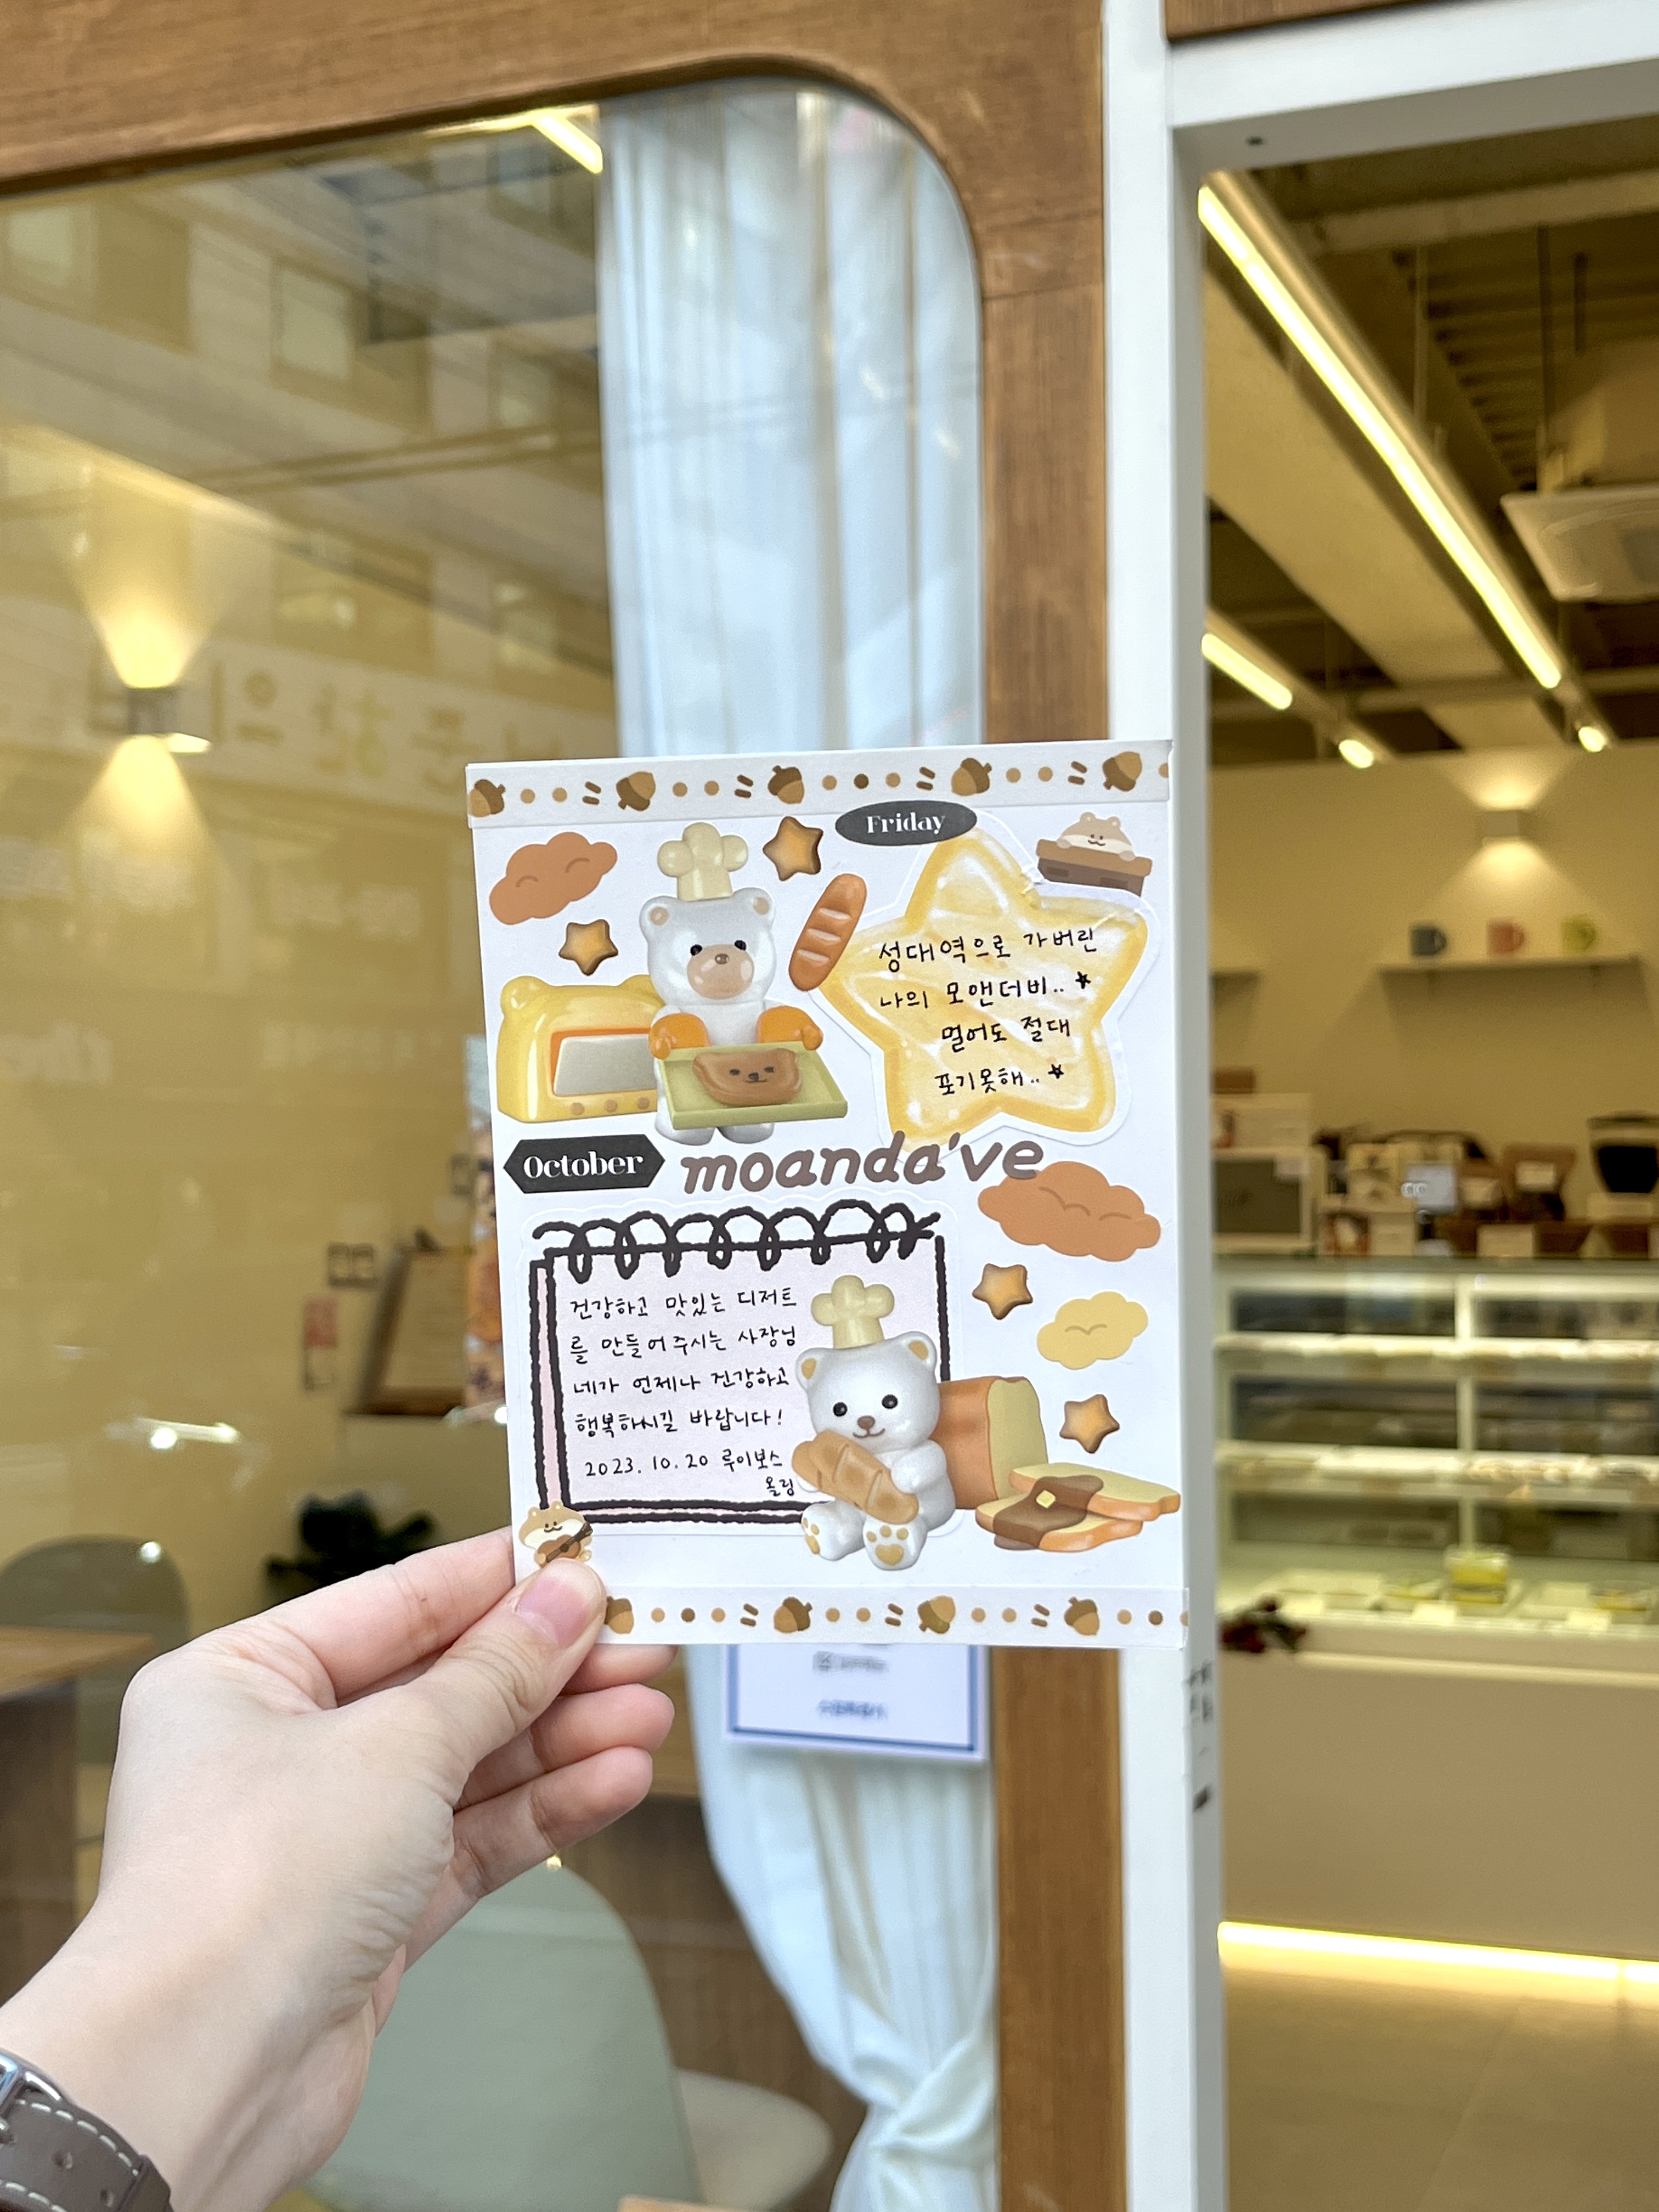 Friday
성대역으로 가버린
나의 모앤더비..★
멀어도 절대
포기못해..★
October
moanda've
건강하고 맛있는 디저트
를 만들어주시는 사장님
네가 언제나 건강하고
행복하시길 바랍니다!
2023. 10. 20 루이보스
올림